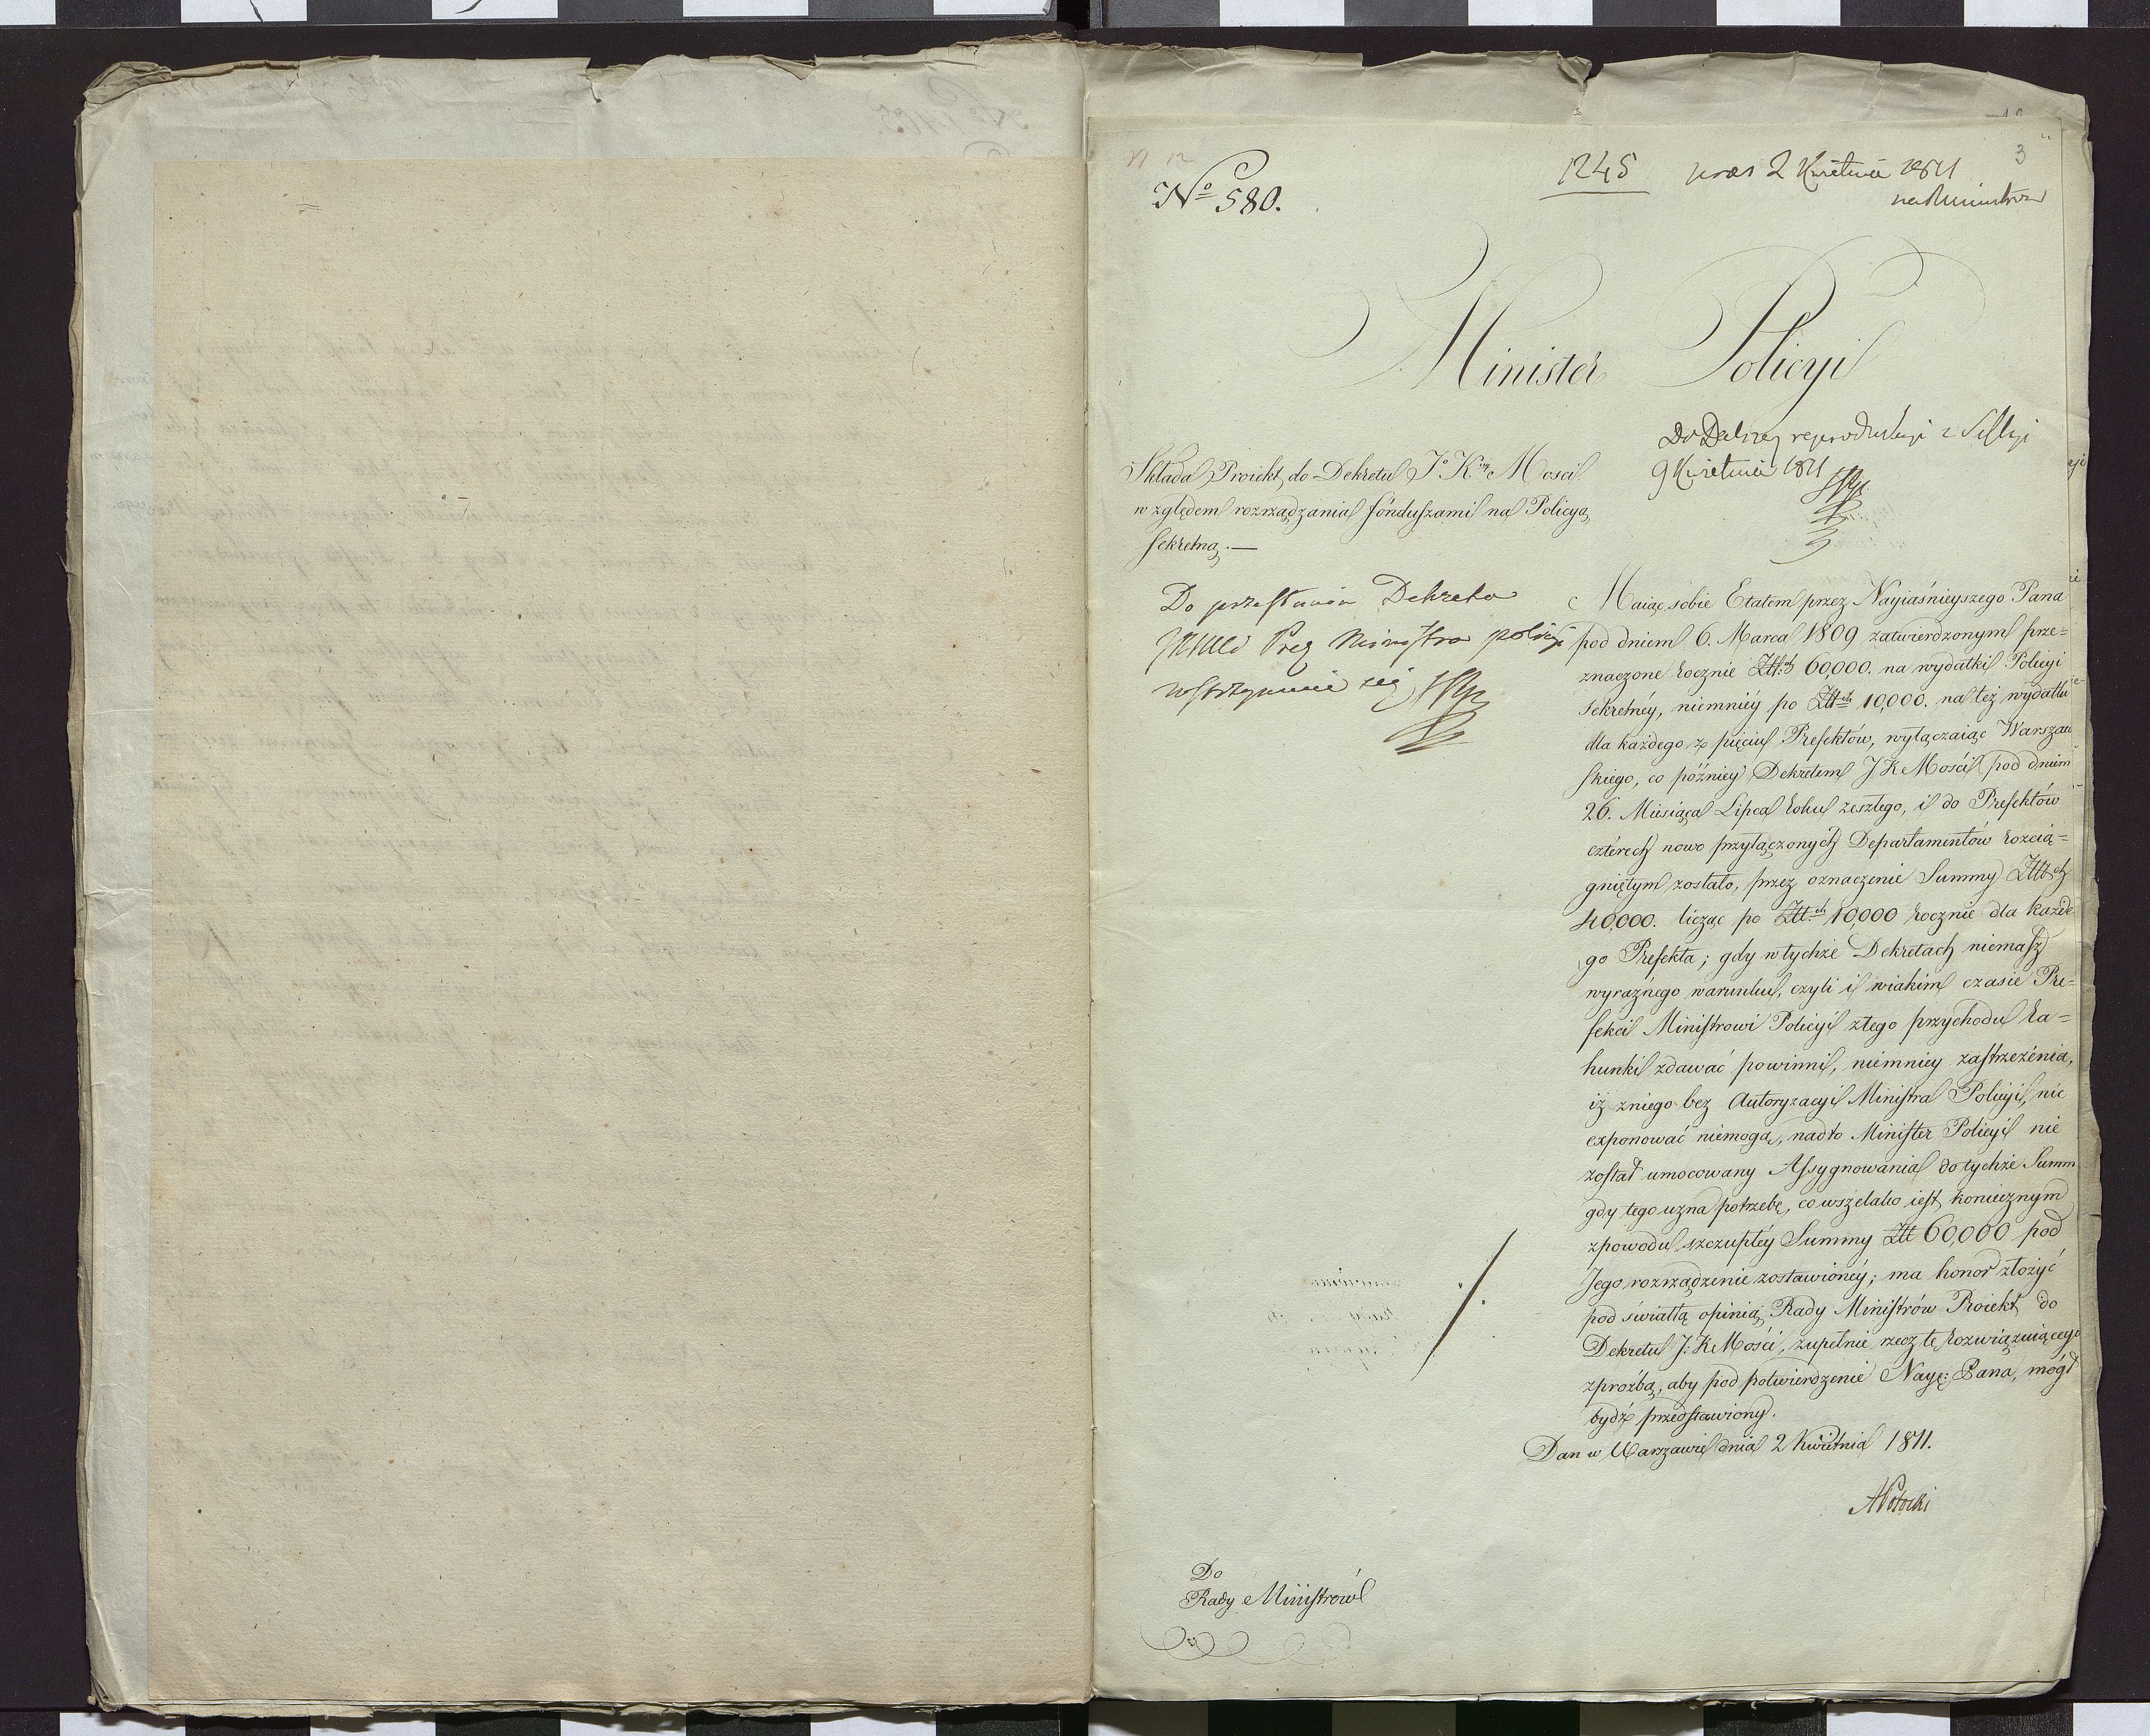 3
1245 præs 2 Kwietnia 1811
na Ministrów
No 580.
Minister Policyi
Do Dalszey reprodukcyi z Sessyi
9 Kwietnia 1811
Składa Proiekt do Dekretu Jo Kiey Mosci
względem rozrządzania fónduszami na Policyą
sekretną.—
Do przesłania Dekretu
Prez Ministra policyi
wstrzymanie się
Maiąc sobie Etatem przez Nayiaśnieyszego Pana
pod dniem 6. Marca 1809 zatwierdzonym prze-
znaczone rocznie Złł.ch 60,000. na wydatki Policyi
sekretnéy, niemniéy po Złł.ch 10,000. na też wydatki
dla każdego z pięciu Prefektów, wyłączaiąc Warszaw
skiego, co późniey Dekretem J K Mości pod dniem
26. Miesiąca Lipca roku zeszłego, i do Prefektów
czterech nowo przyłączonych Departamentów rozcią-
gniętym zostało, przez oznaczenie Summy Złłch
40,000. licząc po Złł.ch 10,000 rocznie dla każde
go Prefekta; gdy w tychże Dekretach niemasz
wyraznego warunku, czyli i wiakim czasie Pre-
fekci Ministrowi Policyi ztego przychodu ra-
hunki zdawać powinni, niemniey zastrzeżenia,
iż zniego bez Autoryzacyi Ministra Policyi, nic
exponować niemogą, nadto Minister Policyi nie
został umocowany Assygnowania do tychże Summ
gdy tego uzna potrzebę, co wszelako iest koniecznym
zpowodu szczupłéy Summy Złł 60,000 pod
Jego rozrządzenie zostawionéy; ma honor złożyć
pod światłą opinią Rady Ministrów Proiekt do
Dekretu J: K Mości, zupełnie rzecz tę rozwiązuiącego
zprozbą, aby pod potwierdzenie Nayę: Pana, mógł
bydź przedstawiony.
Dan w Warszawie dnia 2 Kwietnia 1811.
APotocki
Do
Rady Ministrów